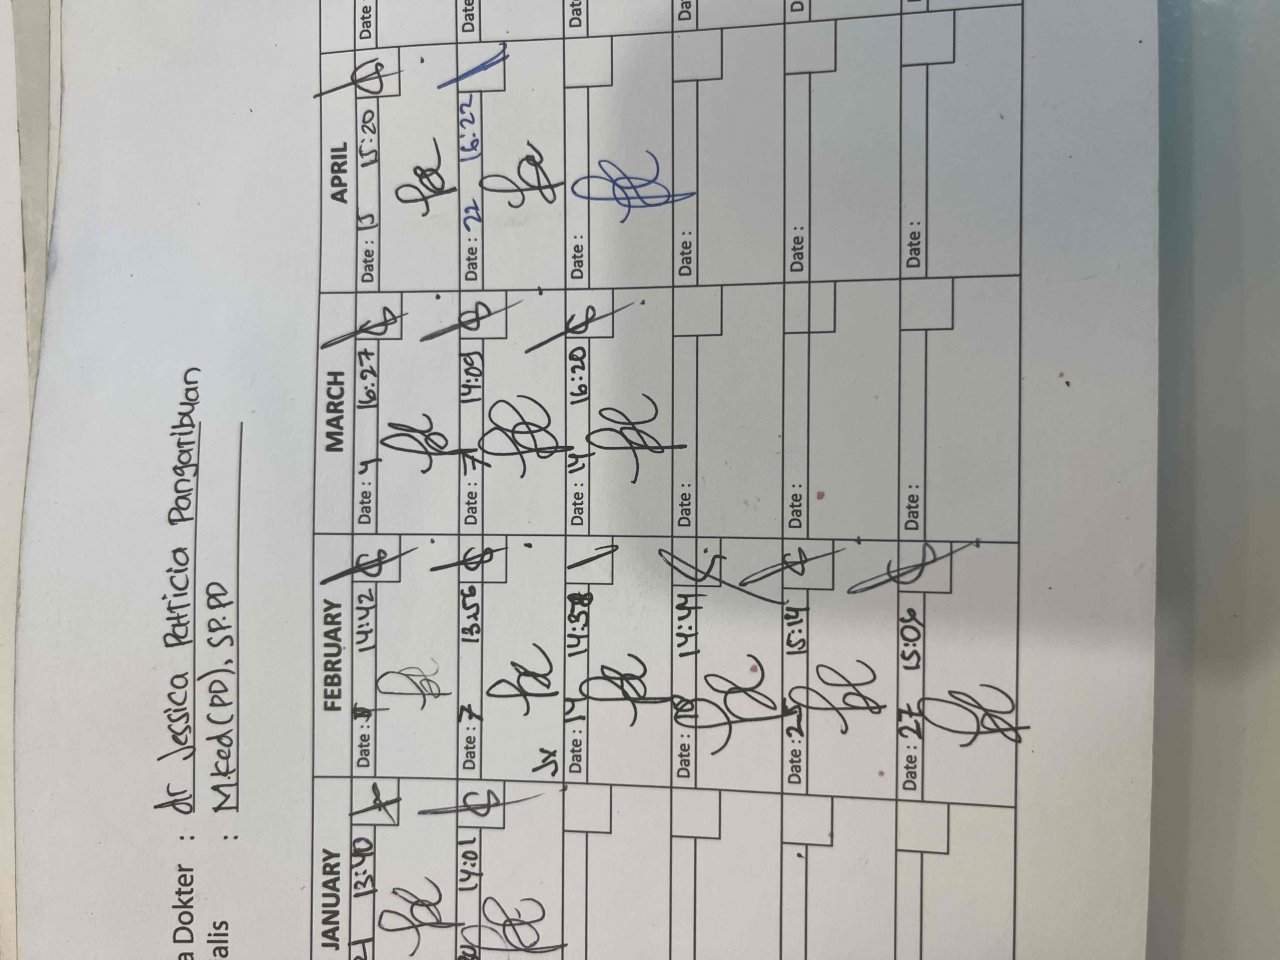 a Dokter : dr Jessica Patricia Pangaribuan
alis : M.Ked(PD), SP.PD
JANUARY FEBRUARY MARCH APRIL
13:40 Date : 14:42 Date : 4 16:27 Date : 15 15:20 Date
14:01 Date : 7 13:56 Date : 7 14:09 Date : 22 16:22 Date
Date : 14 14:38 Date : 14 16:20 Date : Dat
Date : 18 14:44 Date : Date : Da
Date : 25 15:14 Date : Date : D
Date : 27 15:05 Date : Date :